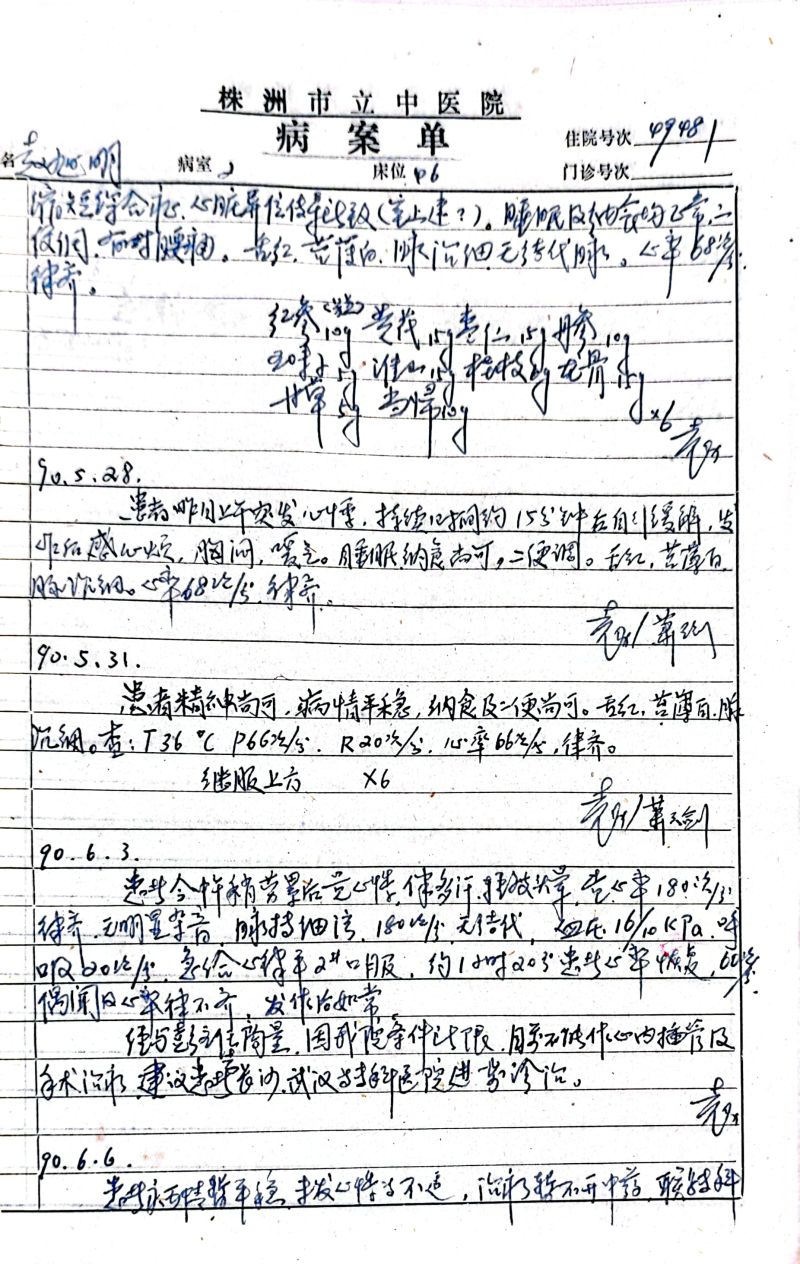 株洲市立中医院
病案单
住院号次 49481
名 病室 2 床位 06 门诊号次
综合症、心脏异位传导所致(室上速?)。睡眠及纳食均正常,二
便调,有时腰痛。舌红,苔薄白,脉沉细,无结代脉。心率68次/分,
律齐。
红参10g 黄芪15g 枣仁15g 丹参10g
五味子5g 淮山15g 桂枝6g 龙骨15g
甘草5g 当归10g ×6
90.5.28.
患者昨日上午突发心悸,持续时间约15分钟后自行缓解,发
作后感心烦,胸闷,嗳气。睡眠纳食尚可,二便调。舌红,苔薄白,
脉沉细。心率68次/分,律齐。
90.5.31.
患者精神尚可,病情平稳,纳食及二便尚可。舌红,苔薄白,脉
沉细。查:T36℃ P66次/分. R20次/分. 心率66次/分,律齐。
继服上方 ×6
90.6.3.
患者今中午稍劳累后觉心悸,伴多汗,头晕,查心率180次/分
律齐,无明显杂音,脉搏细,180次/分,无结代,血压16/10KPa,呼
吸20次/分,急给心律平2片口服,约1小时20分患者心率恢复,66次/分
偶闻及心率律不齐,发作后如常。
经与彭主任商量,因我院条件所限,目前不能作心内插管及
手术治疗,建议患者去长沙、武汉等专科医院进一步诊治。
90.6.6.
患者病情暂平稳,未发心悸等不适,治疗暂不用中药,联系专科